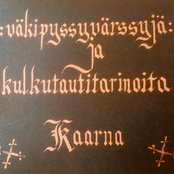 :väkipyssyvärssyjä:
ja
kulkutautitarinoita
Kaarna